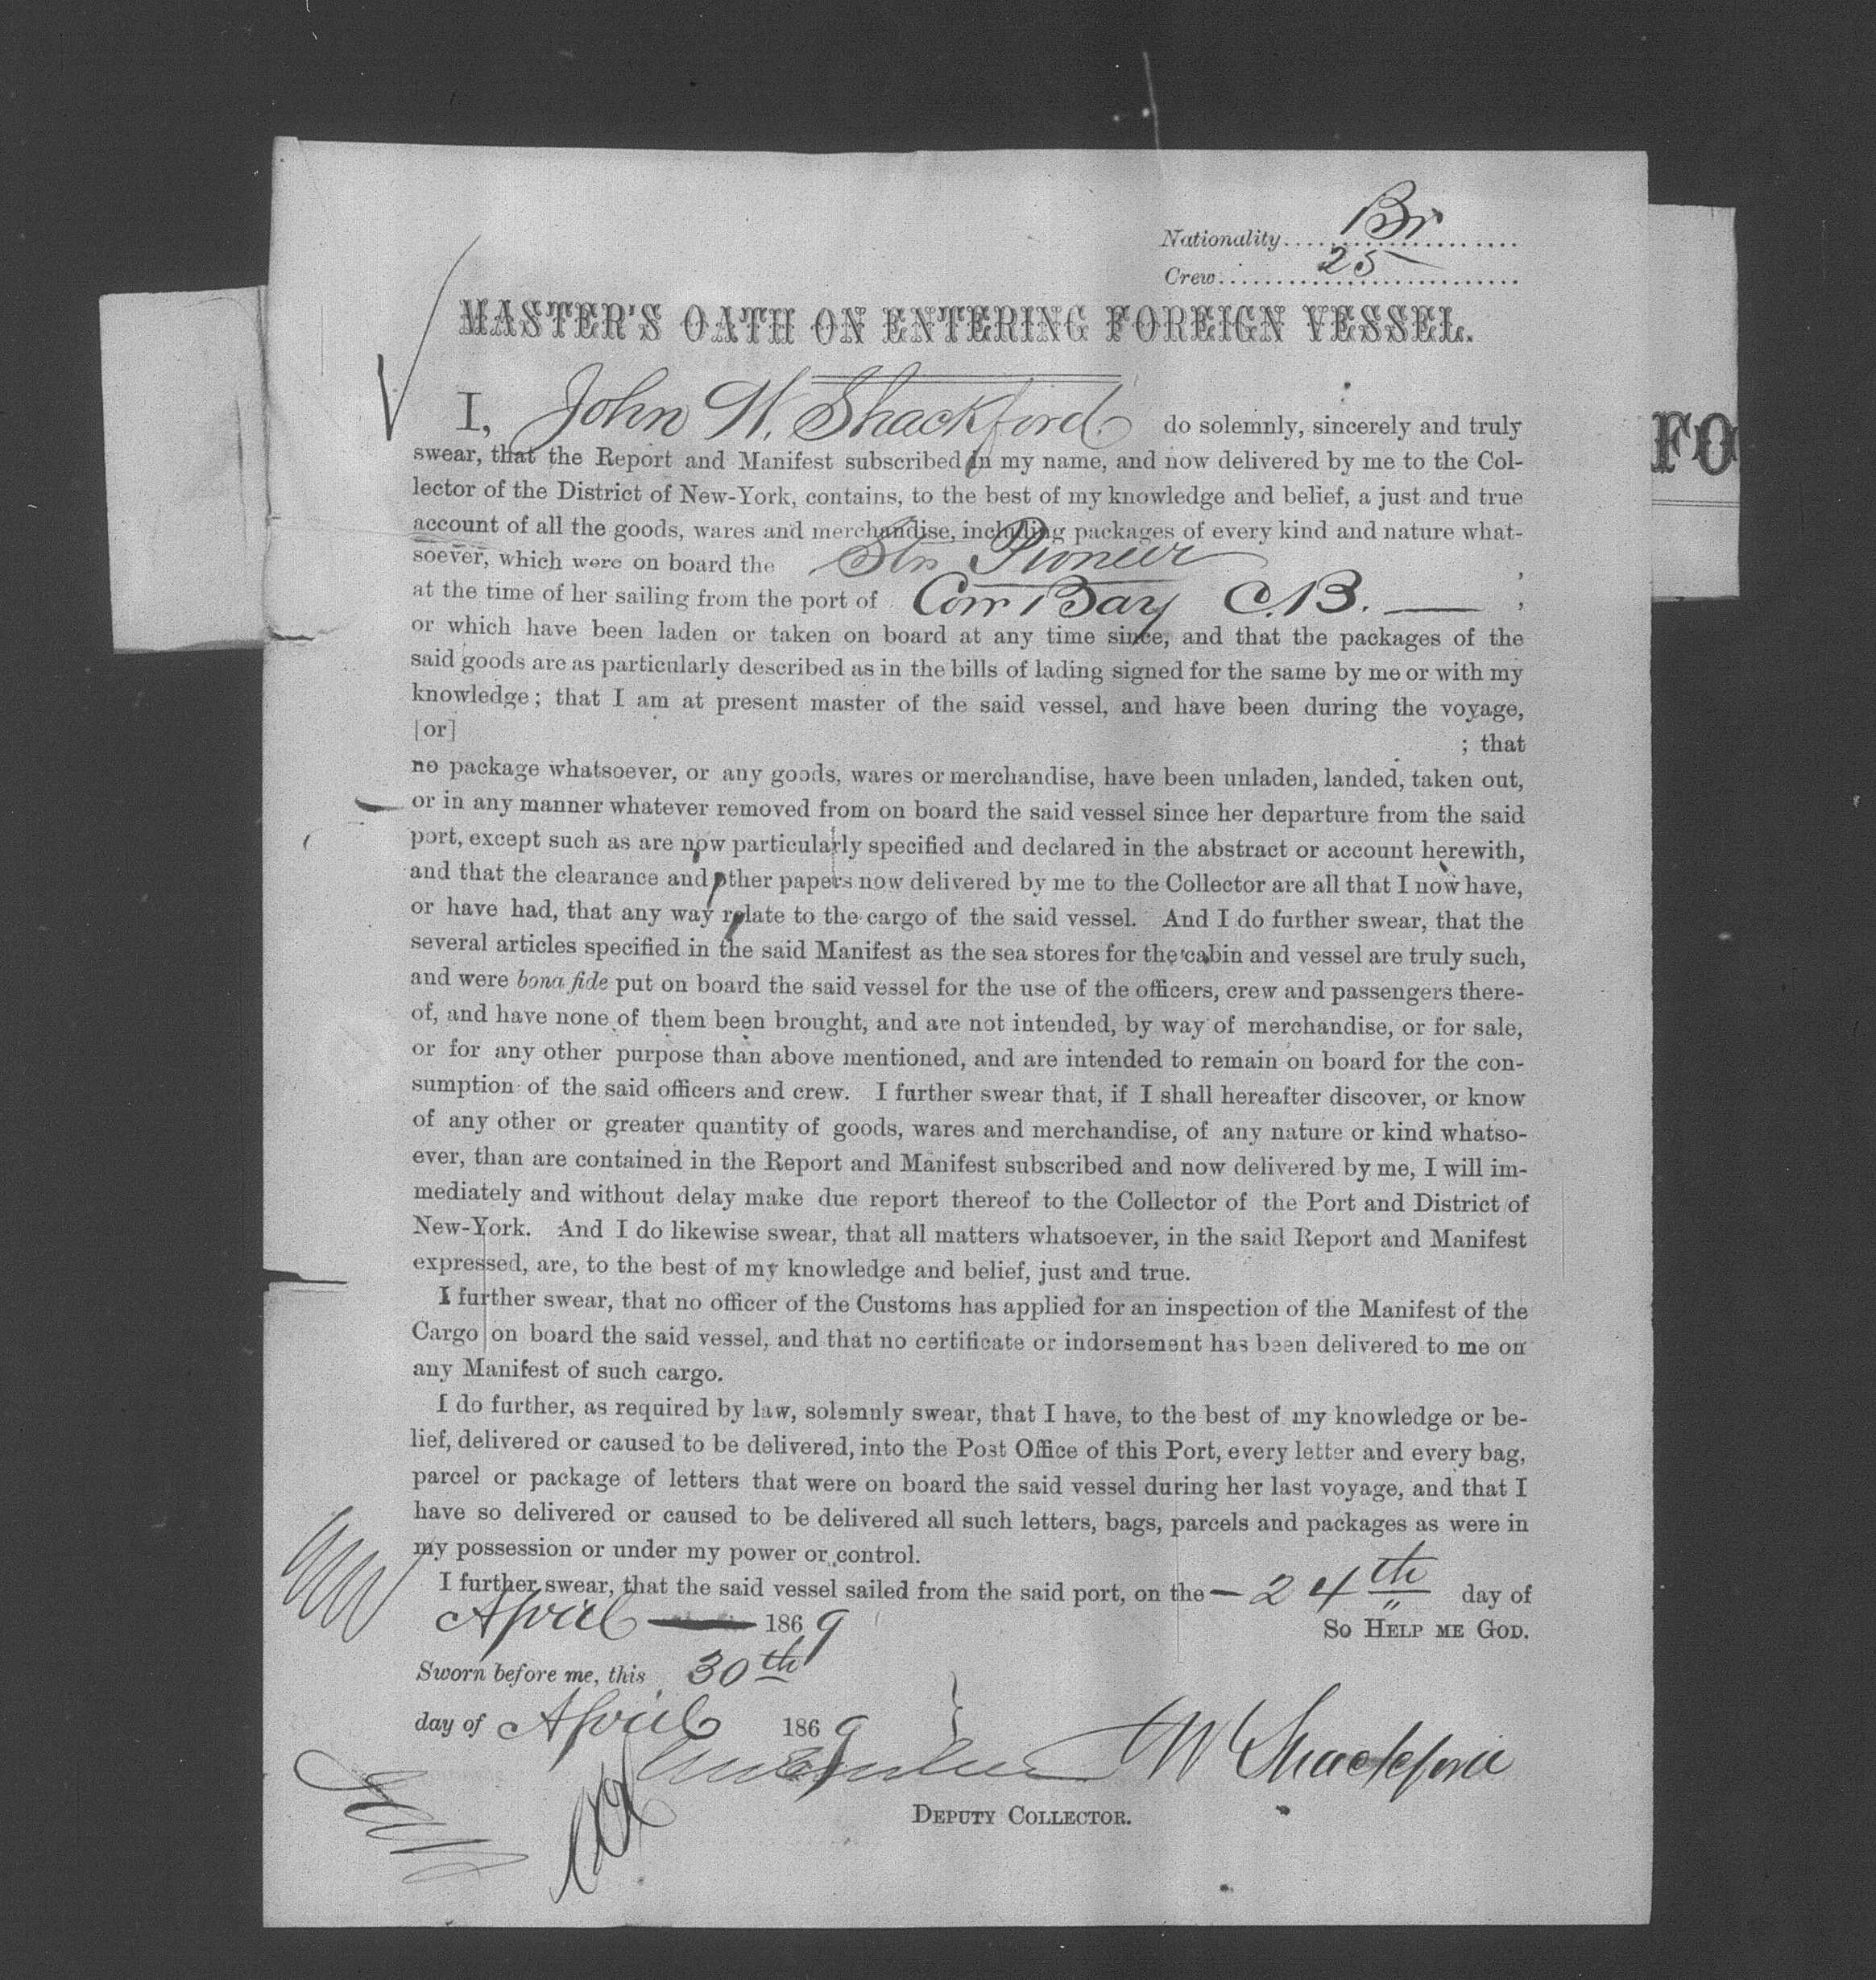 Nationality Br
Crew 25
MASTER'S OATH ON ENTERING FOREIGN VESSEL.
I, John W. Shackford. do solemnly, sincerely and truly
FO
swear, that the Report and Manifest subscribed in my name, and now delivered by me to the Col-
lector of the District of New-York, contains, to the best of my knowledge and belief, a just and true
account of all the goods, wares and merchandise, including packages of every kind and nature what-
soever, which were on board the Str Pioneer ,
at the time of her sailing from the port of Cow Bay C.B. — ,
or which have been laden or taken on board at any time since, and that the packages of the
said goods are as particularly described as in the bills of lading signed for the same by me or with my
knowledge; that I am at present master of the said vessel, and have been during the voyage,
[or] ; that
no package whatsoever, or any goods, wares or merchandise, have been unladen, landed, taken out,
or in any manner whatever removed from on board the said vessel since her departure from the said
port, except such as are now particularly specified and declared in the abstract or account herewith,
and that the clearance and other papers now delivered by me to the Collector are all that I now have,
or have had, that any way relate to the cargo of the said vessel. And I do further swear, that the
several articles specified in the said Manifest as the sea stores for the cabin and vessel are truly such,
and were bona fide put on board the said vessel for the use of the officers, crew and passengers there-
of, and have none of them been brought, and are not intended, by way of merchandise, or for sale,
or for any other purpose than above mentioned, and are intended to remain on board for the con-
sumption of the said officers and crew. I further swear that, if I shall hereafter discover, or know
of any other or greater quantity of goods, wares and merchandise, of any nature or kind whatso-
ever, than are contained in the Report and Manifest subscribed and now delivered by me, I will im-
mediately and without delay make due report thereof to the Collector of the Port and District of
New-York. And I do likewise swear, that all matters whatsoever, in the said Report and Manifest
expressed, are, to the best of my knowledge and belief, just and true.
I further swear, that no officer of the Customs has applied for an inspection of the Manifest of the
Cargo on board the said vessel, and that no certificate or indorsement has been delivered to me on
any Manifest of such cargo.
I do further, as required by law, solemnly swear, that I have, to the best of my knowledge or be-
lief, delivered or caused to be delivered, into the Post Office of this Port, every letter and every bag,
parcel or package of letters that were on board the said vessel during her last voyage, and that I
have so delivered or caused to be delivered all such letters, bags, parcels and packages as were in
my possession or under my power or control.
I further swear, that the said vessel sailed from the said port, on the — 24th day of
April — 1869 SO HELP ME GOD.
Sworn before me, this 30th
day of April 1869
W Shackford
DEPUTY COLLECTOR.